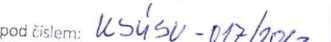 pod číslem: KSÚSV - 017/2013